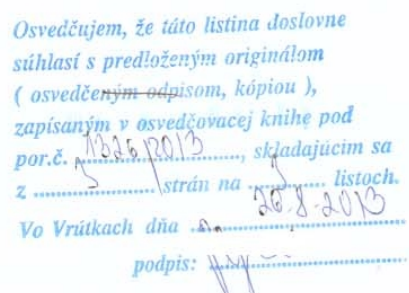 Osvedčujem, že táto listina doslovne
súhlasí s predloženým originálom
( osvedčeným odpisom, kópiou ),
zapísaným v osvedčovacej knihe pod
por.č. 1326/2013, skladajúcim sa
z ............ strán na ............ listoch.
Vo Vrútkach dňa 26.8.2013
podpis: